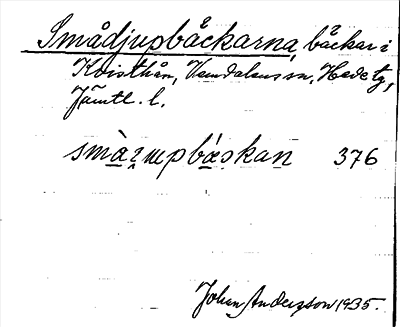 Smådjupbäckarna, bäckar i
Kvisthån, Vemdalens sn, Hede tg,
Jämtl. l.
376
Johan Anderzson 1935.